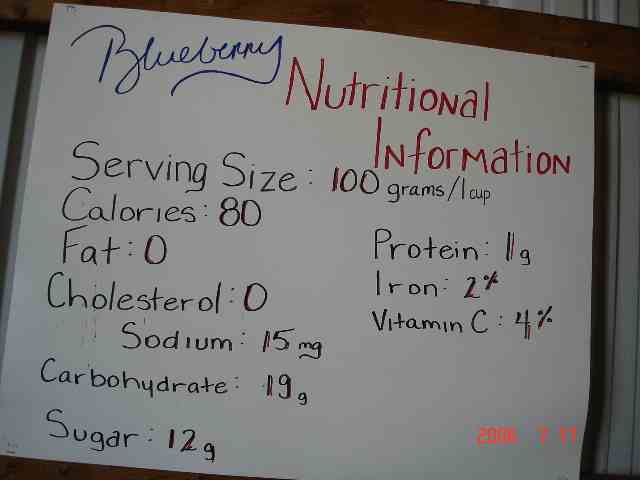 Blueberry
Nutritional
Information
Serving Size: 100 grams/1 cup
Calories: 80
Fat: 0
Cholesterol: 0
Sodium: 15 mg
Carbohydrate: 19g
Sugar: 12g
Protein: 1g
Iron: 2%
Vitamin C: 4%
7 17